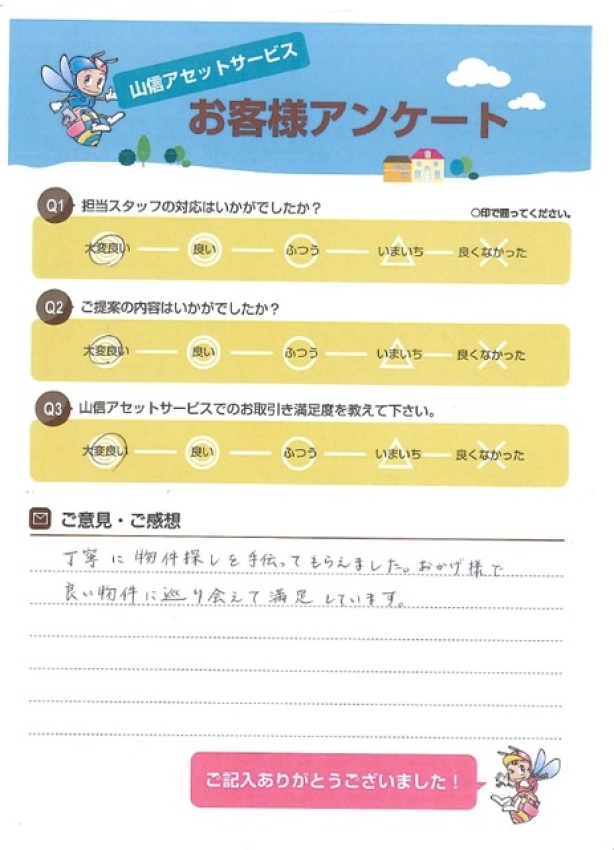 山信アセットサービス
お客様アンケート
Q1 担当スタッフの対応はいかがでしたか？
○印で囲ってください。
大変良い 良い ふつう いまいち 良くなかった
Q2 ご提案の内容はいかがでしたか？
大変良い 良い ふつう いまいち 良くなかった
Q3 山信アセットサービスでのお取引き満足度を教えて下さい。
大変良い 良い ふつう いまいち 良くなかった
ご意見・ご感想
丁寧に物件探しを手伝ってもらえました。おかげ様で
良い物件に巡り会えて満足しています。
ご記入ありがとうございました！